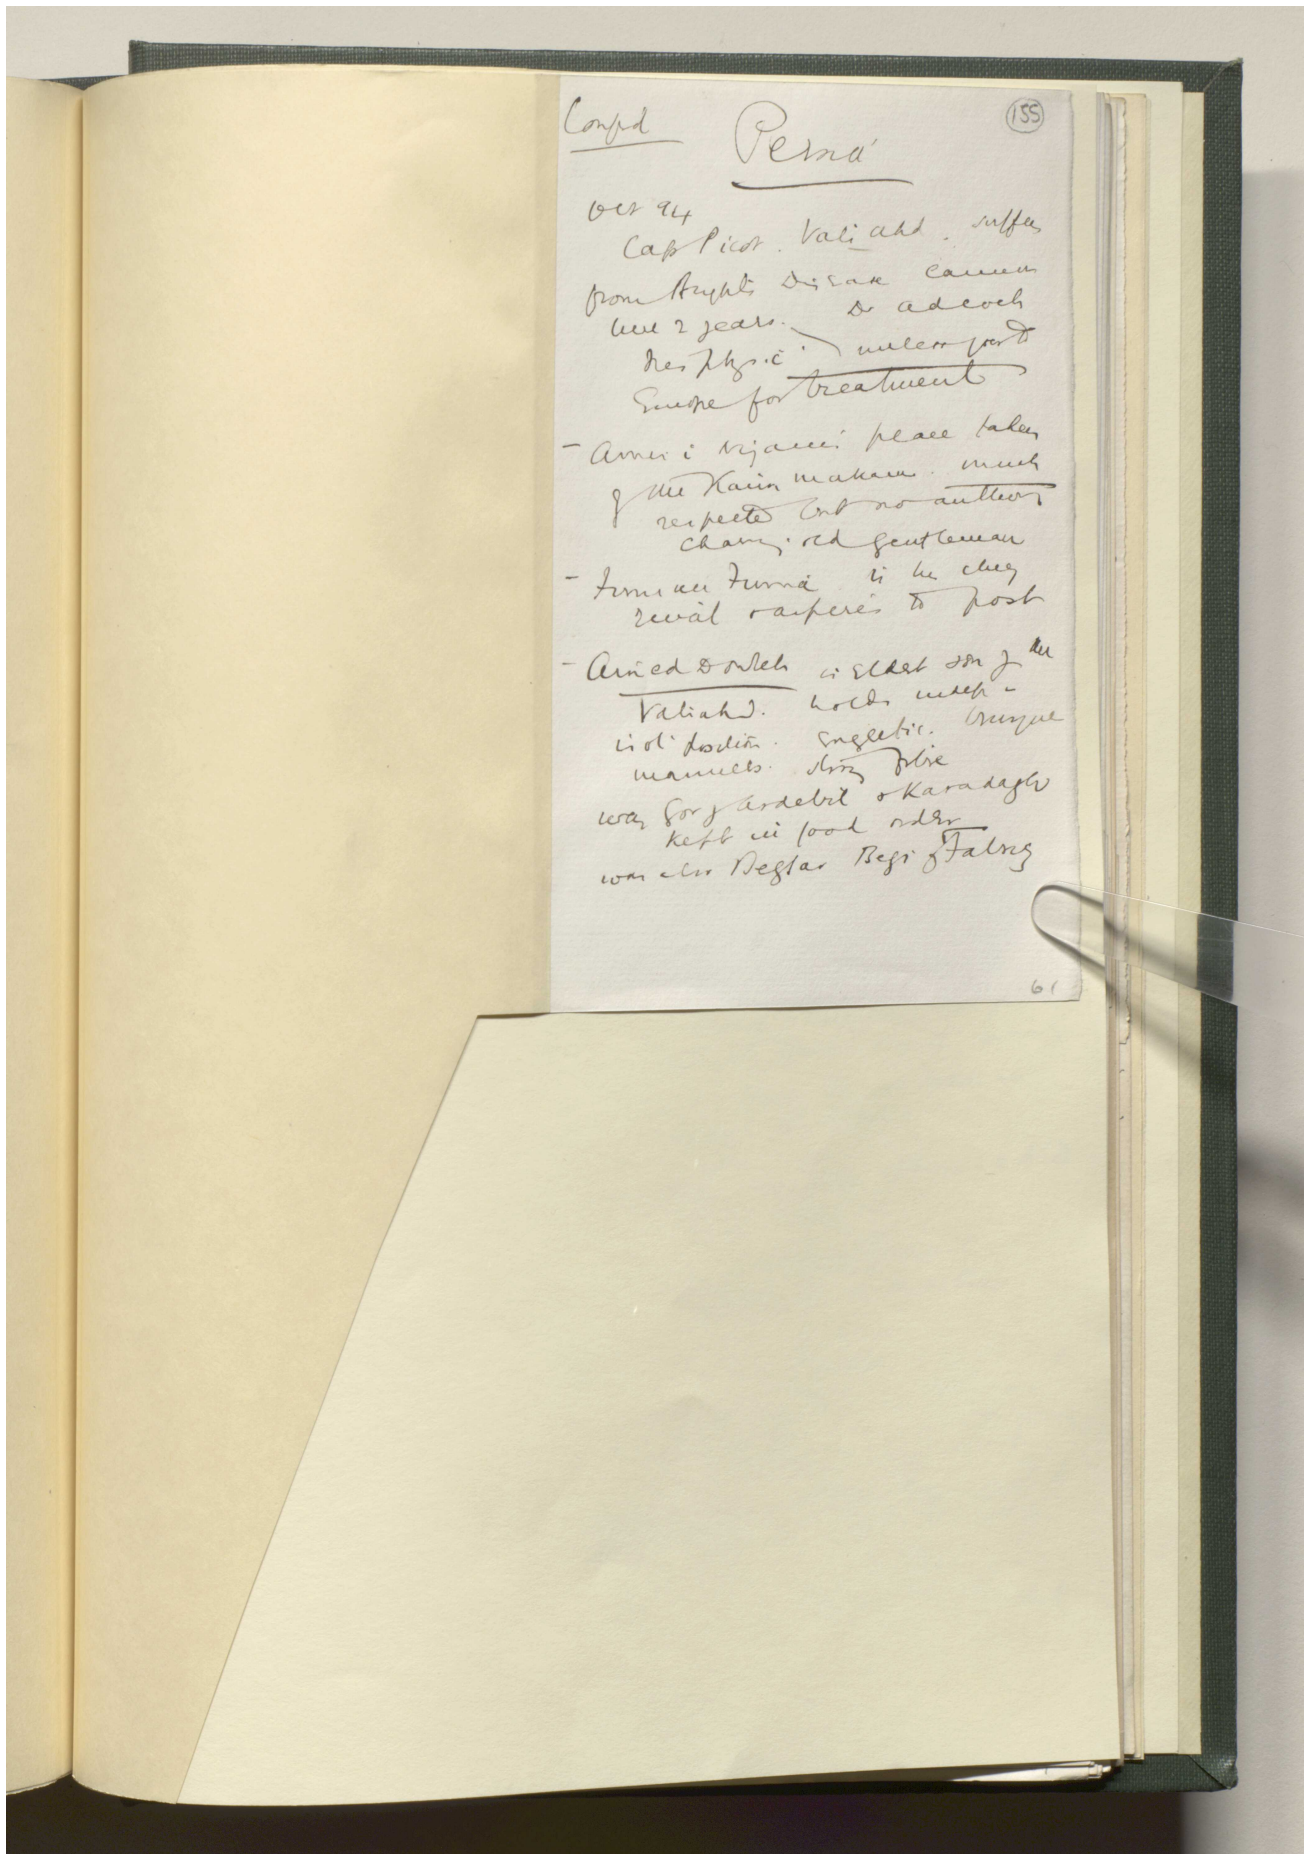 155
Confd
Persia
Oct 94
Capt Picot. Valiahd. suffers
from Brights Disease cannot
live 2 years. Dr Adcock
his physic. unless goes to
Europe for treatment
- Amir i Nizam's place taken
of the Kaim makam. much
respected but no authority
charmg. old gentleman
- is his chief
rival & aspires to post
- Amed Douleh is eldest son of the
Valiahd. holds indep -
position. energetic. brusque
manners.
was Gor of Ardebil & Karadagh
kept in good order
was also Beglar Begi of Tabriz
61